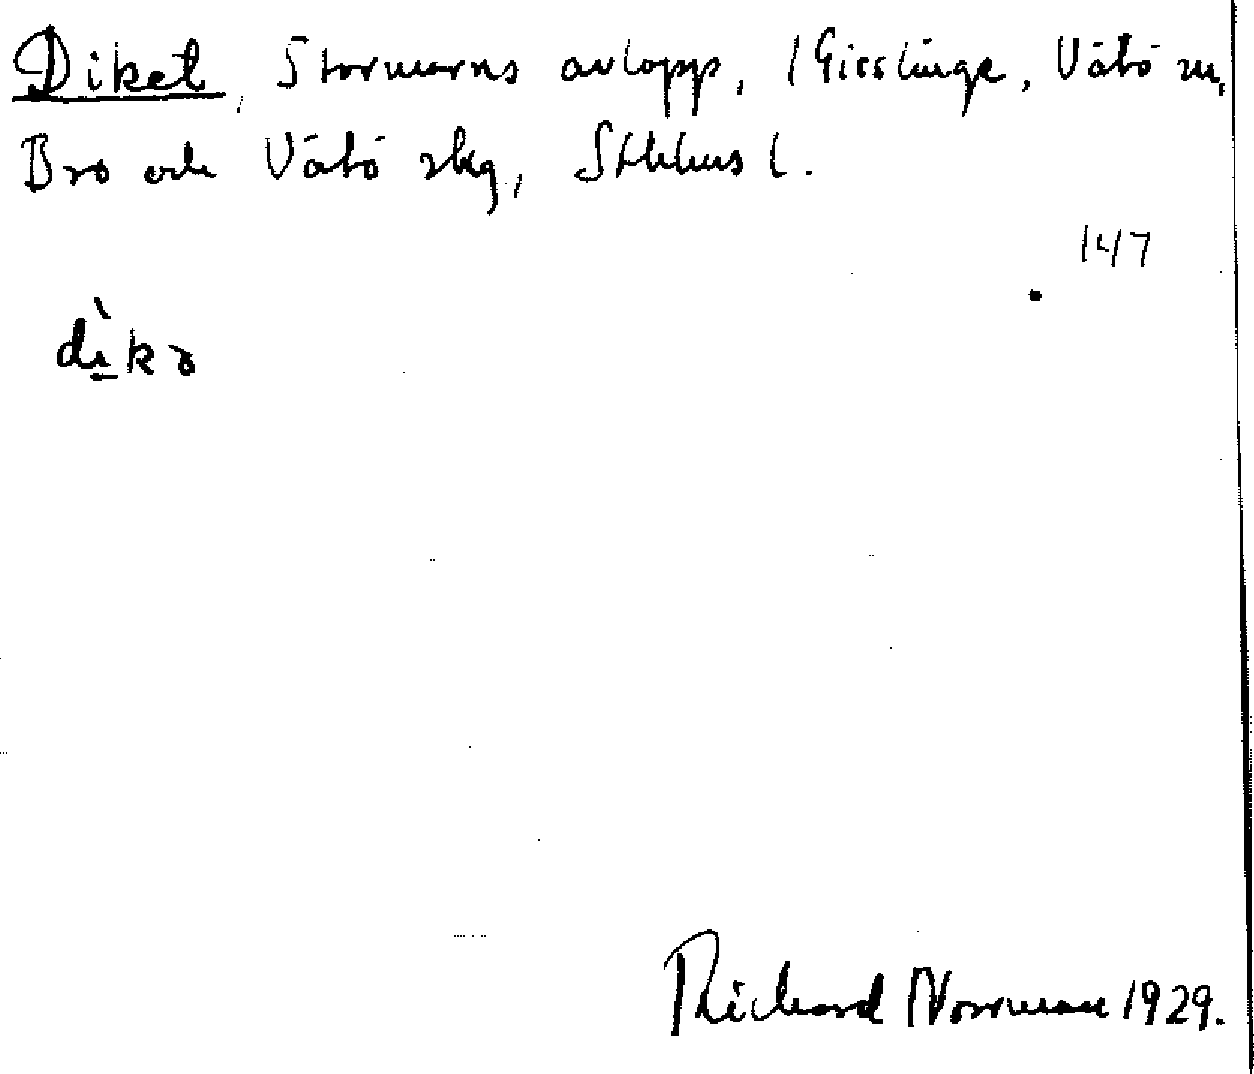 Diket, Stormarns avlopp, Gisslinge, Vätö sn,
Bro och Vätö skg, Sthlms l.
147
Richard Norrman 1929.